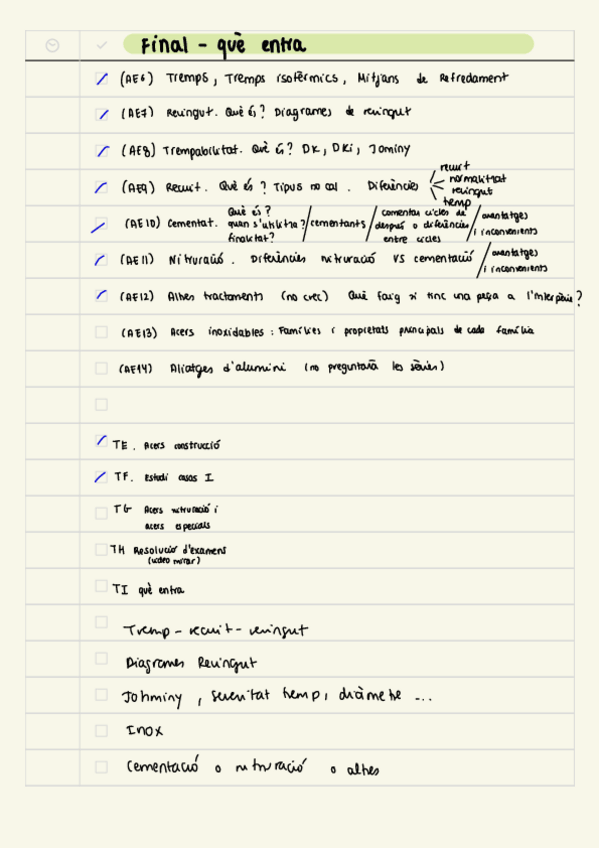 Final - què entra
(AE6) Tremps, Tremps isotèrmics, Mitjans de Refredament
(AE7) Revingut. Què és? Diagrames de revingut
(AE8) Trempabilitat. Què és? DK, DKi, Jominy
(AE9) Recuit. Què és? Tipus no cal. Diferències
recuit
normalitzat
revingut
temp
(AE10) Cementat. Què és? quan s'utilitza? finalitat? / cementants / comentar cicles de després o diferències entre cicles / avantatges i inconvenients
(AE11) Nitruració. Diferències nitruració VS cementació / avantatges i inconvenients
(AE12) Altres tractaments (no crec) Què faig si tinc una peça a l'intempèrie?
(AE13) Acers inoxidables: Famílies i propietats principals de cada família
(AE14) Aliatges d'alumini (no preguntarà les sèries)
TE. Acers construcció
TF. Estudi casos I
TG Acers nitruració i
acers especials
TH Resolució d'examens
(video mirar)
TI què entra
Tremp - recuit - revingut
Diagrames Revingut
Johminy, severitat tremp, diàmetre ...
Inox
Cementació o nitruració o altres